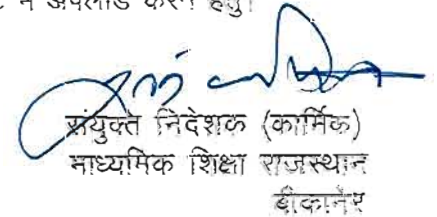 में अपलोड करने हेतु।
संयुक्त निदेशक (कार्मिक)
माध्यमिक शिक्षा राजस्थान
बीकानेर